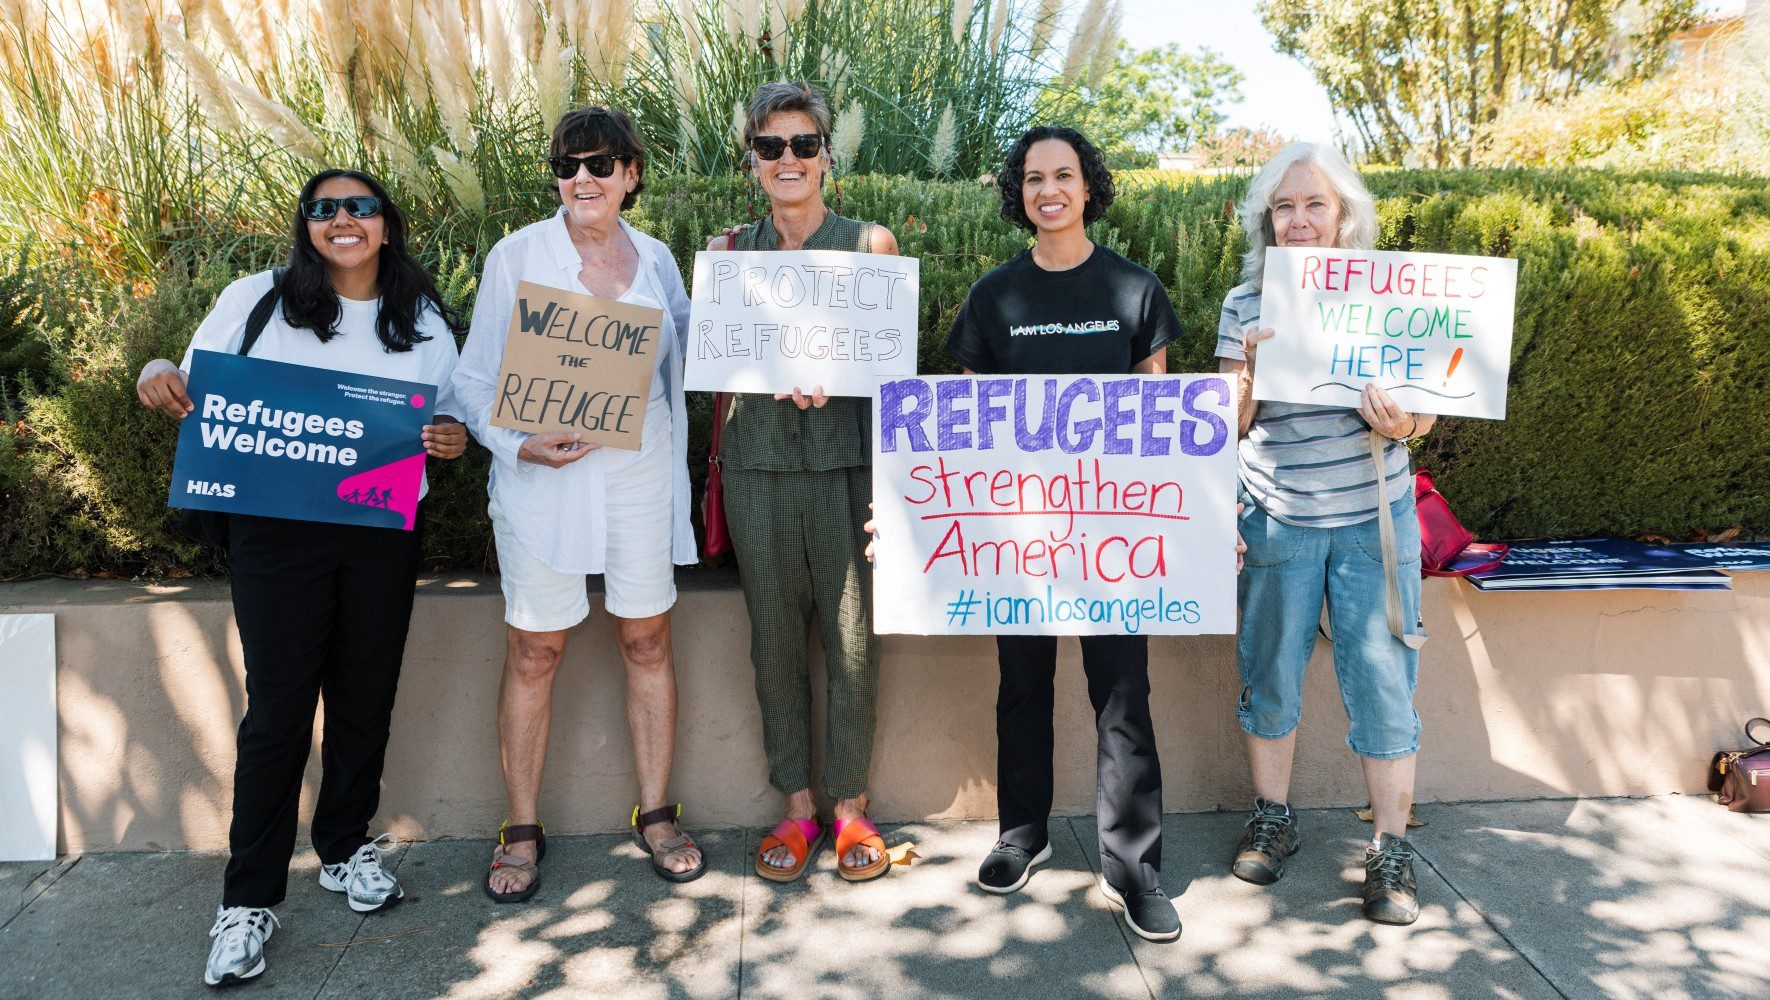 Welcome the stranger.
Protect the refugee.
Refugees
Welcome
HIAS
WELCOME
THE
REFUGEE
PROTECT
REFUGEES
I AM LOS ANGELES
REFUGEES
strengthen
America
#iamlosangeles
REFUGEES
WELCOME
HERE!
WELCOME